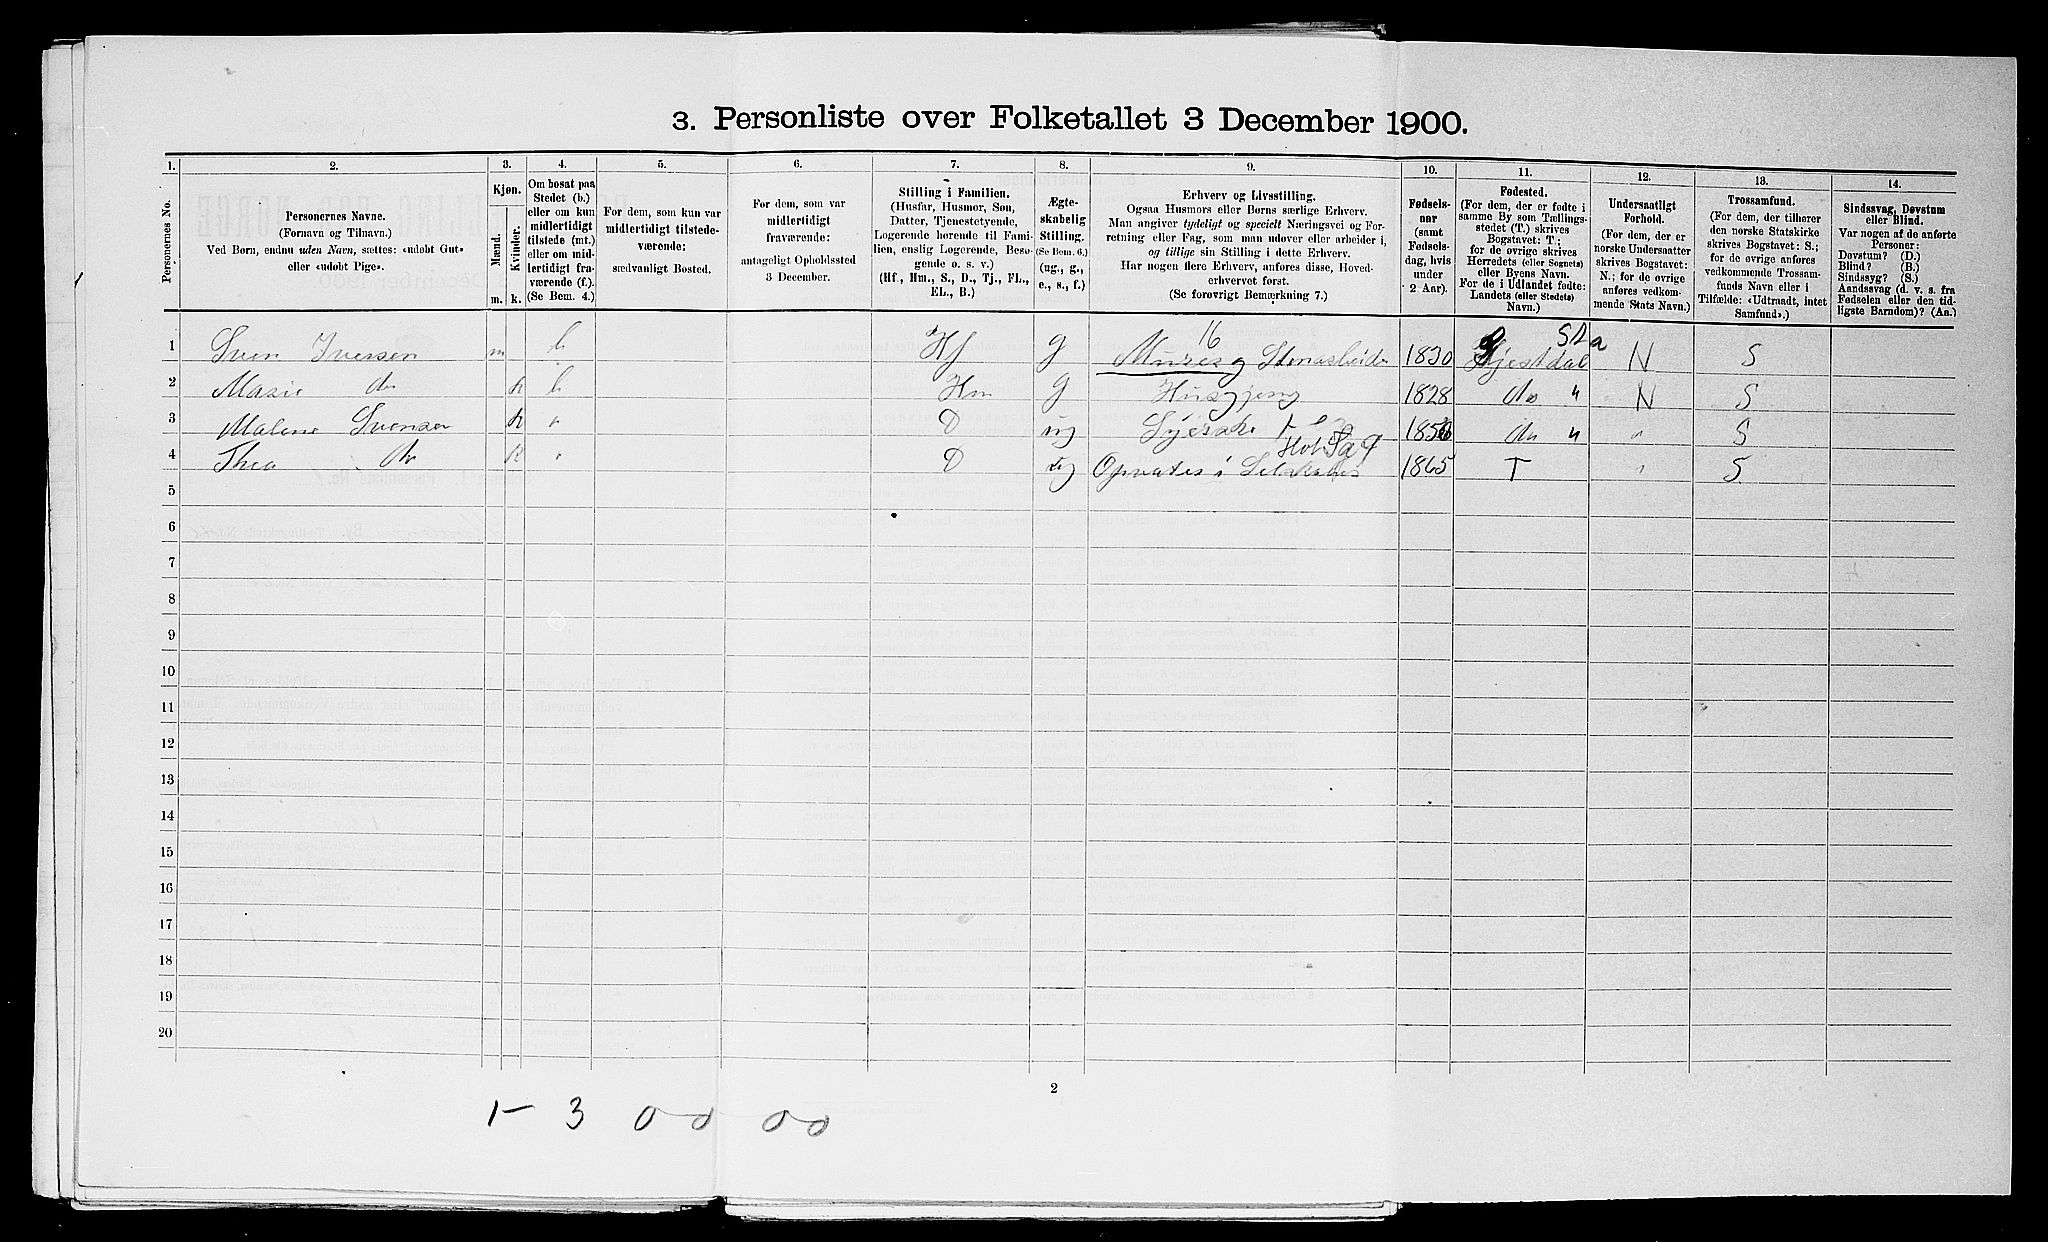 3. Personliste over Folketallet 3 December 1900.
1. 2. 3. 4. 5. 6. 7. 8. 9. 10. 11. 12. 13. 14.
Personernes No.
Personernes Navne.
(Fornavn og Tilnavn.)
Ved Børn, endnu uden Navn, sættes: «udøbt Gut»
eller «udøbt Pige».
Kjøn.
Mænd.
Kvinder.
m. k.
Om bosat paa
Stedet (b.)
eller om kun
midlertidigt
tilstede (mt.)
eller om mid-
lertidigt fra-
værende (f.).
(Se Bem. 4.)
For dem, som kun var
midlertidigt tilstede-
værende:
sædvanligt Bosted.
For dem, som var
midlertidigt
fraværende:
antageligt Opholdssted
3 December.
Stilling i Familien.
(Husfar, Husmor, Søn,
Datter, Tjenestetyende,
Logerende hørende til Fami-
lien, enslig Logerende, Besø-
gende o. s. v.)
(Hf., Hm., S., D., Tj., FL.,
EL., B.)
Ægte-
skabelig
Stilling.
(Se Bem. 6.)
(ug., g.,
e., s., f.)
Erhverv og Livsstilling.
Ogsaa Husmors eller Børns særlige Erhverv.
Man angiver tydeligt og specielt Næringsvei og For-
retning eller Fag, som man udøver eller arbeider i,
og tillige sin Stilling i dette Erhverv.
Har nogen flere Erhverv, anføres disse, Hoved-
erhvervet først.
(Se forøvrigt Bemærkning 7.)
Fødsels-
aar
(samt
Fødsels-
dag, hvis
under
2 Aar).
Fødested.
(For dem, der er fødte i
samme By som Tællings-
stedet (T.) skrives
Bogstavet: T.;
for de øvrige skrives
Herredets (eller Sognets)
eller Byens Navn.
For de i Udlandet fødte:
Landets (eller Stedets)
Navn.)
Undersaatligt
Forhold.
(For dem, der er
norske Undersaatter
skrives Bogstavet:
N.; for de øvrige
anføres vedkom-
mende Stats Navn.)
Trossamfund.
(For dem, der tilhører
den norske Statskirke
skrives Bogstavet: S.;
for de øvrige anføres
vedkommende Trossam-
funds Navn eller i
Tilfælde: «Udtraadt, intet
Samfund».)
Sindssvag, Døvstum
eller Blind.
Var nogen af de anførte
Personer:
Døvstum? (D.)
Blind? (B.)
Sindssyg? (S.)
Aandssvag (d. v. s. fra
Fødselen eller den tid-
ligste Barndom)? (Aa.)
16 Sta
1 Sven Iversen m b Hf g Murer og Stenarbeider 1830 Gjestdal N S
2 Marie do k b Hm g Husgjerning 1828 do " N S
3 Malene Svensen k " D ug Syerske 185 do " " S
4 Thea do k " D ug Opvarter i Selskaber 1865 T " S
5
6
7
8
9
10
11
12
13
14
15
16
17
18
19
20
2
1 - 3 0 0 0 0